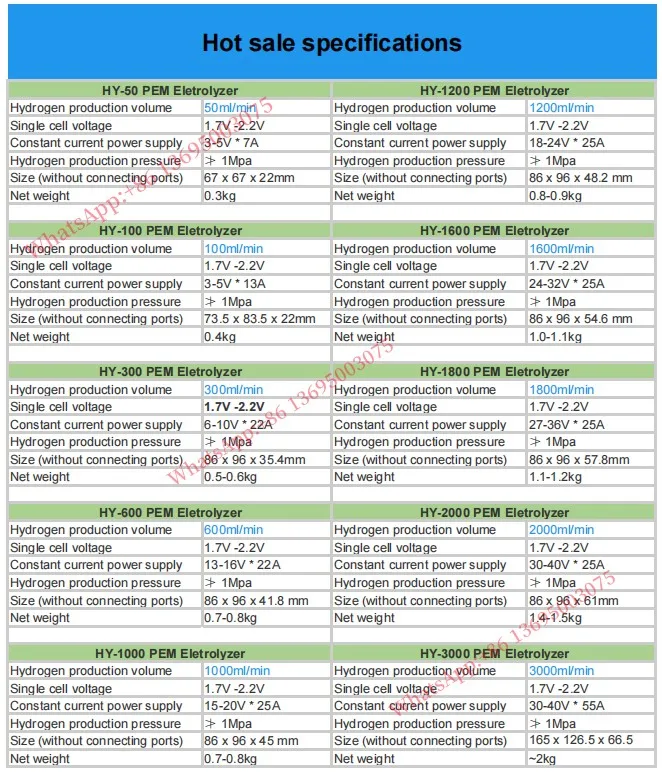 Hot sale specifications
HY-50 PEM Eletrolyzer
Hydrogen production volume 50ml/min
Single cell voltage 1.7V -2.2V
Constant current power supply 3-5V * 7A
Hydrogen production pressure ≻ 1Mpa
Size (without connecting ports) 67 x 67 x 22mm
Net weight 0.3kg
HY-1200 PEM Eletrolyzer
Hydrogen production volume 1200ml/min
Single cell voltage 1.7V -2.2V
Constant current power supply 18-24V * 25A
Hydrogen production pressure ≻ 1Mpa
Size (without connecting ports) 86 x 96 x 48.2 mm
Net weight 0.8-0.9kg
HY-100 PEM Eletrolyzer
Hydrogen production volume 100ml/min
Single cell voltage 1.7V -2.2V
Constant current power supply 3-5V * 13A
Hydrogen production pressure ≻ 1Mpa
Size (without connecting ports) 73.5 x 83.5 x 22mm
Net weight 0.4kg
HY-1600 PEM Eletrolyzer
Hydrogen production volume 1600ml/min
Single cell voltage 1.7V -2.2V
Constant current power supply 24-32V * 25A
Hydrogen production pressure ≻ 1Mpa
Size (without connecting ports) 86 x 96 x 54.6 mm
Net weight 1.0-1.1kg
HY-300 PEM Eletrolyzer
Hydrogen production volume 300ml/min
Single cell voltage 1.7V -2.2V
Constant current power supply 6-10V * 22A
Hydrogen production pressure ≻ 1Mpa
Size (without connecting ports) 86 x 96 x 35.4mm
Net weight 0.5-0.6kg
HY-1800 PEM Eletrolyzer
Hydrogen production volume 1800ml/min
Single cell voltage 1.7V -2.2V
Constant current power supply 27-36V * 25A
Hydrogen production pressure ≻ 1Mpa
Size (without connecting ports) 86 x 96 x 57.8mm
Net weight 1.1-1.2kg
HY-600 PEM Eletrolyzer
Hydrogen production volume 600ml/min
Single cell voltage 1.7V -2.2V
Constant current power supply 13-16V * 22A
Hydrogen production pressure ≻ 1Mpa
Size (without connecting ports) 86 x 96 x 41.8 mm
Net weight 0.7-0.8kg
HY-2000 PEM Eletrolyzer
Hydrogen production volume 2000ml/min
Single cell voltage 1.7V -2.2V
Constant current power supply 30-40V * 25A
Hydrogen production pressure ≻ 1Mpa
Size (without connecting ports) 86 x 96 x 61mm
Net weight 1.4-1.5kg
HY-1000 PEM Eletrolyzer
Hydrogen production volume 1000ml/min
Single cell voltage 1.7V -2.2V
Constant current power supply 15-20V * 25A
Hydrogen production pressure ≻ 1Mpa
Size (without connecting ports) 86 x 96 x 45 mm
Net weight 0.7-0.8kg
HY-3000 PEM Eletrolyzer
Hydrogen production volume 3000ml/min
Single cell voltage 1.7V -2.2V
Constant current power supply 30-40V * 55A
Hydrogen production pressure ≻ 1Mpa
Size (without connecting ports) 165 x 126.5 x 66.5
Net weight ~2kg
WhatsApp:+86 13695003075
WhatsApp:+86 13695003075
WhatsApp:+86 13695003075